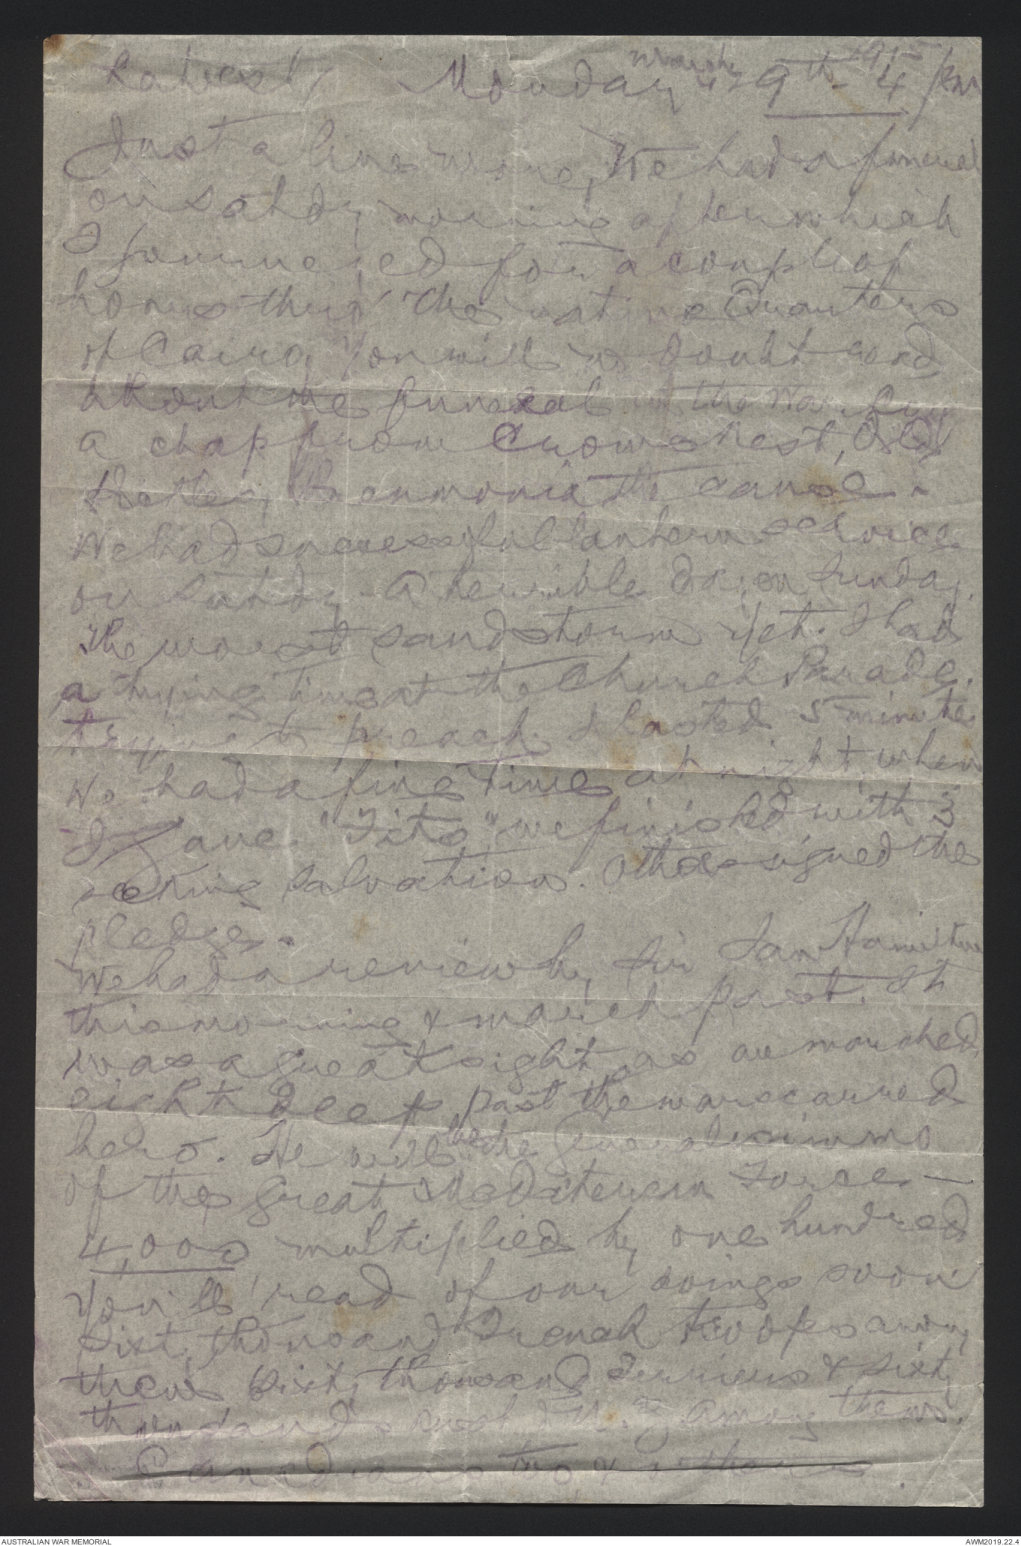 Latest, Monday March 29th - 4 pm 1915
Just a line more, We had a funeral
on Satdy morning after which
I journeyed for a couple of
hours thro' the native Quarters
of Cairo, You will no doubt read
about the funeral in the War Cry
a chap from Crows Nest, Qld
Pneumonia the cause -
We had successful lantern service
on Satdy. A terrible day on Sunday.
The worst sandstorm yet. I had
a trying time at the Church Parade.
preach I lasted 5 minutes
We had a fine time at night when
I gave "Fits" we finished with 3
seeking salvation. Others signed the
pledge.
We had a review by Sir Ian Hamilton
this morning & march past. It
was a great sight as we marched
eight deep past the war scarred
hero. He will be the generalissimo
of the great Medaterean Force -
4,000 multiplied by one hundred
You'll read of our doings soon
Sixty thousand French troops among
them Sixty thousand & sixty
thousand among them.
Canadians too
AUSTRALIAN WAR MEMORIAL
AWM2019.22.4